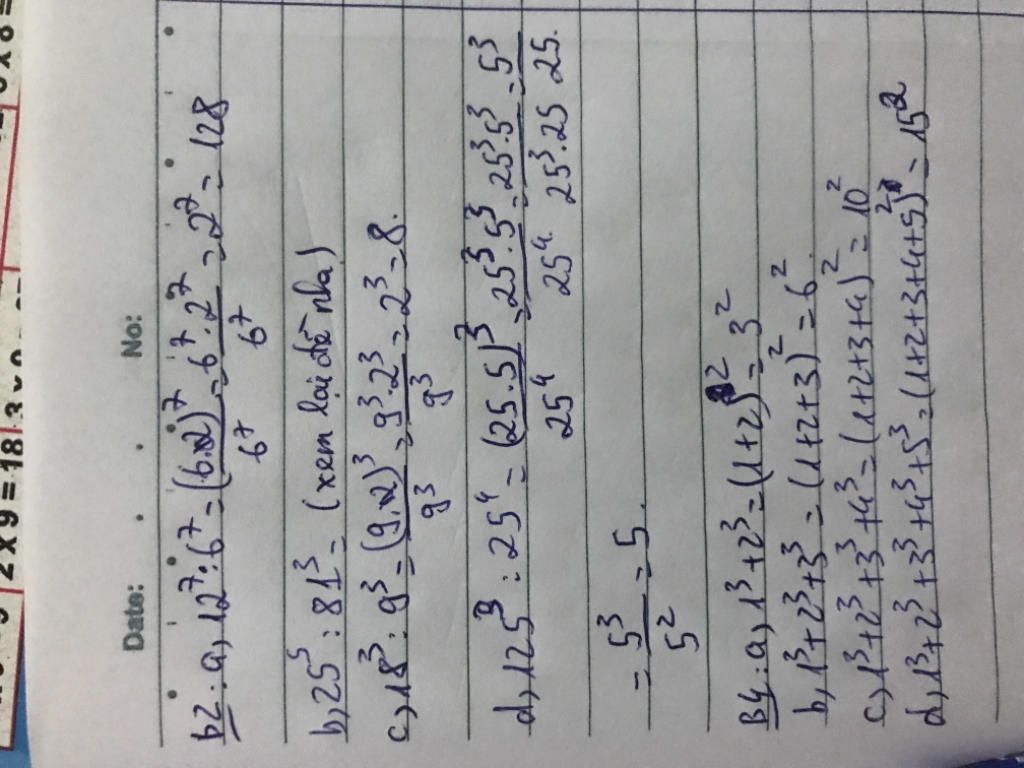 2 x 9 = 18
Date:
No:
b2: a, 12⁷ : 6⁷ = (6.2)⁷/6⁷ = 6⁷.2⁷/6⁷ = 2⁷ = 128
b, 25⁵ : 81³ = (xem lại đề nha)
c, 18³ : 9³ = (9.2)³/9³ = 9³.2³/9³ = 2³ = 8.
d, 125³ : 25⁴ = (25.5)³/25⁴ = 25³.5³/25⁴ = 25³.5³/25³.25 = 5³/25.
= 5³/5² = 5.
B4: a, 1³+2³ = (1+2)² = 3²
b, 1³+2³+3³ = (1+2+3)² = 6²
c, 1³+2³+3³+4³ = (1+2+3+4)² = 10²
d, 1³+2³+3³+4³+5³ = (1+2+3+4+5)² = 15²